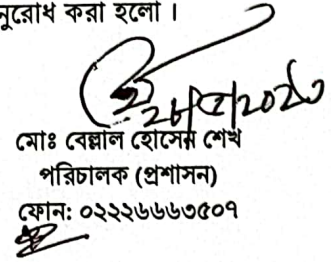 নুরোধ করা হলো ।
মোঃ বেল্লাল হোসেন শেখ
পরিচালক (প্রশাসন)
ফোন: ০২২২৬৬৬৩৫০৭